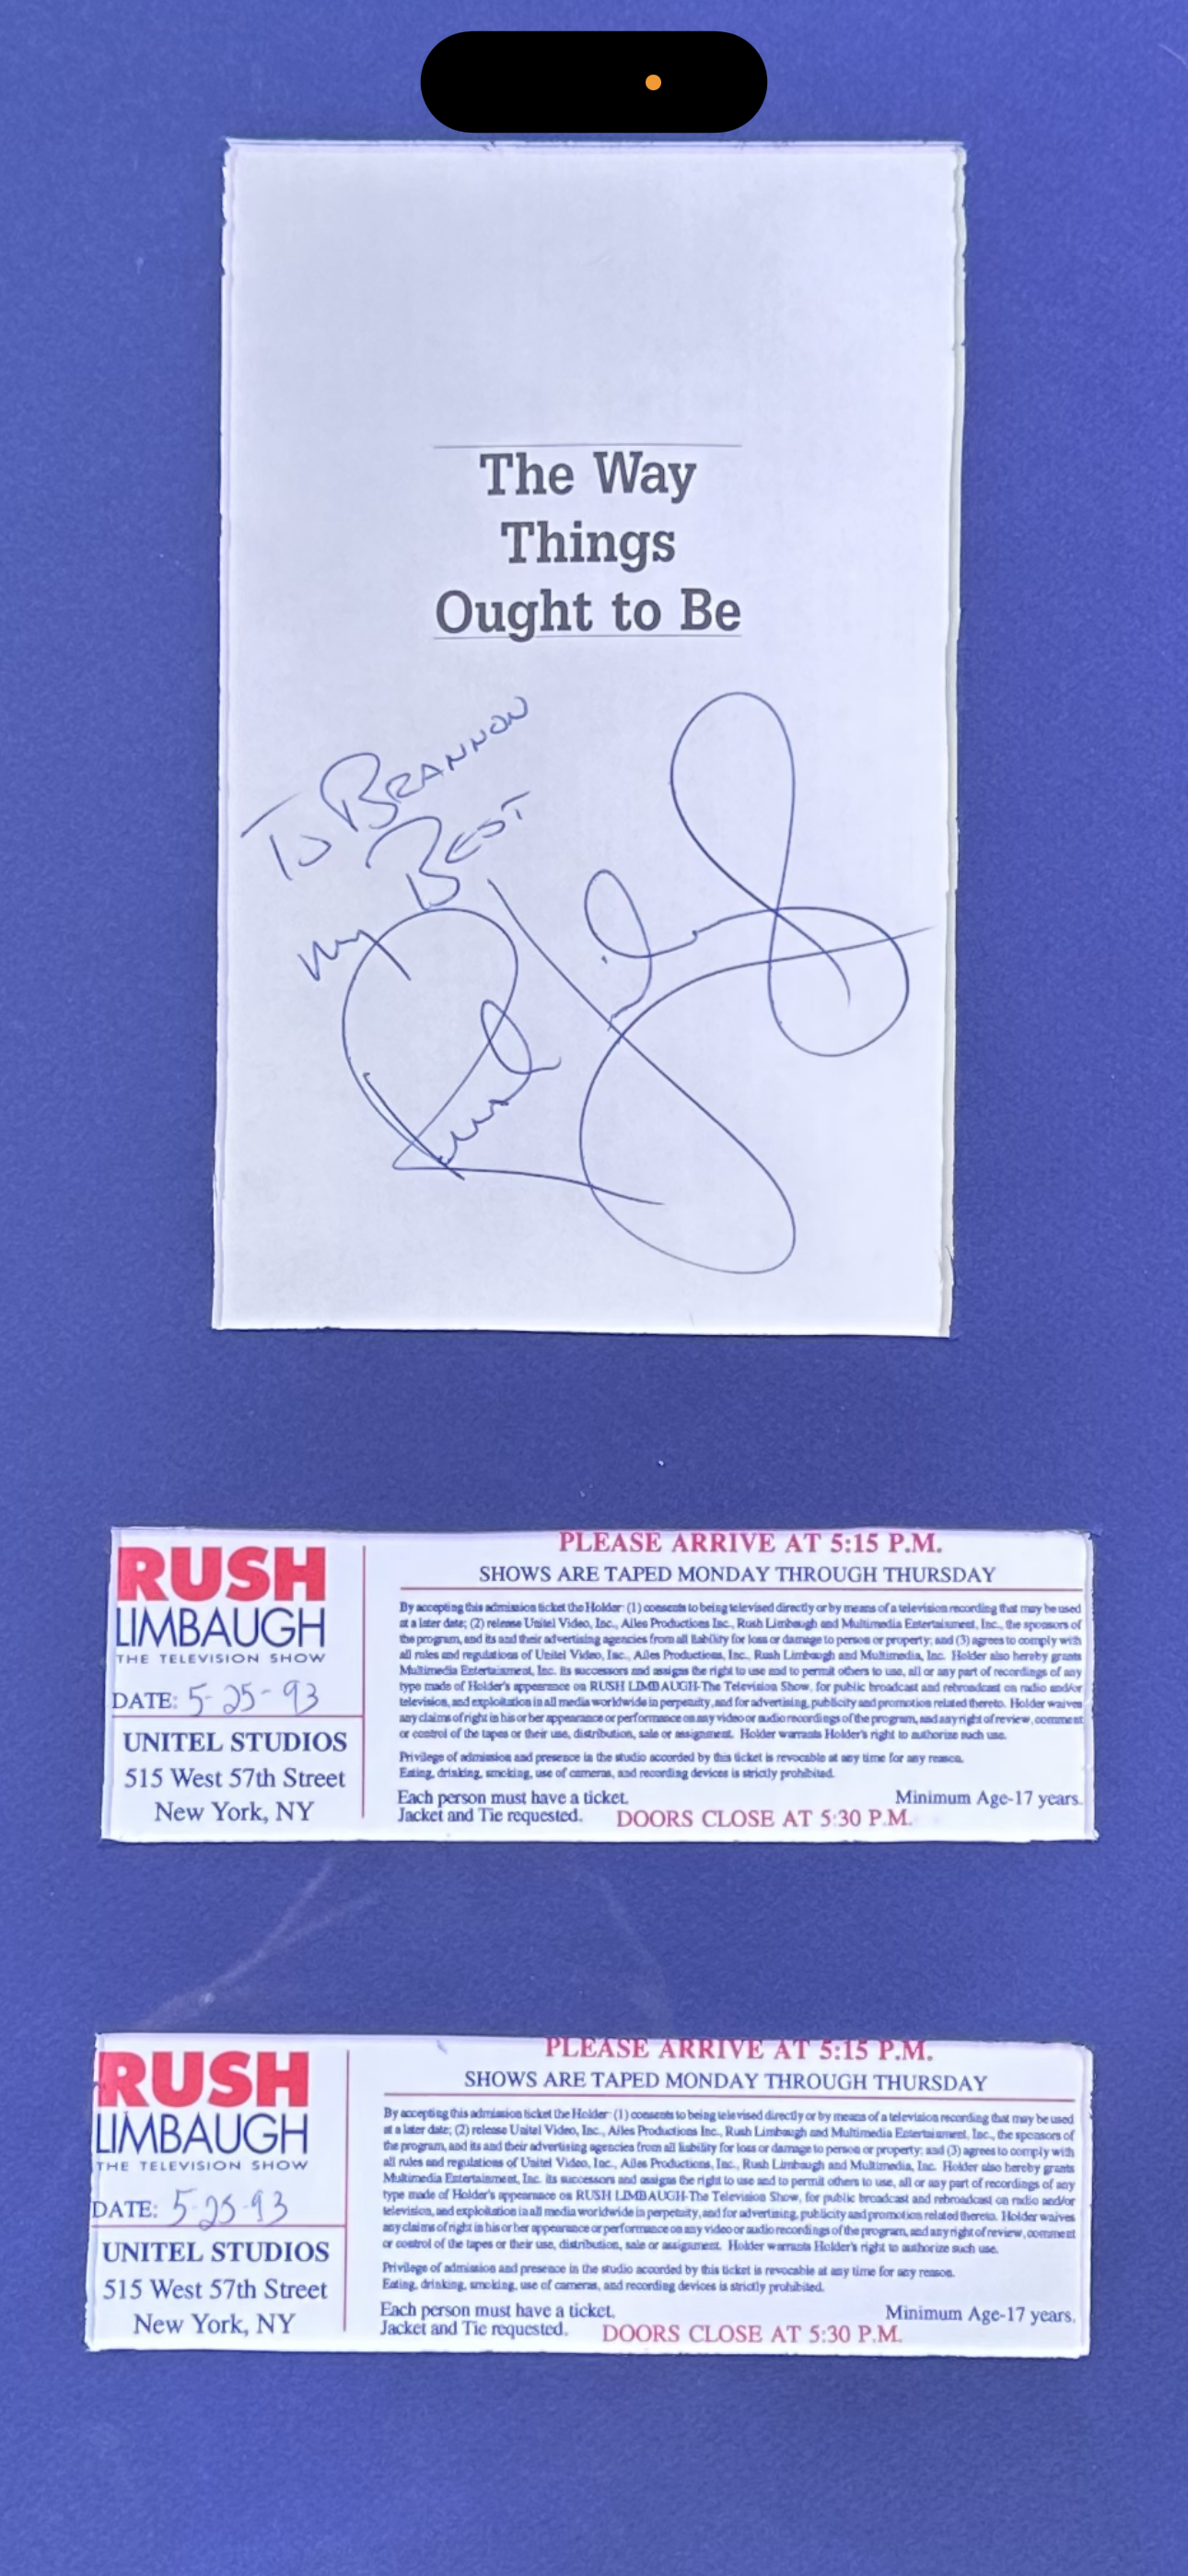 The Way
Things
Ought to Be
To Brannon
My Best
Rush Limbaugh
RUSH
LIMBAUGH
THE TELEVISION SHOW
DATE: 5-25-93
UNITEL STUDIOS
515 West 57th Street
New York, NY
PLEASE ARRIVE AT 5:15 P.M.
SHOWS ARE TAPED MONDAY THROUGH THURSDAY
By accepting this admission ticket the Holder: (1) consents to being televised directly or by means of a television recording that may be used
at a later date; (2) release Unitel Video, Inc., Ailes Productions Inc., Rush Limbaugh and Multimedia Entertainment, Inc., the sponsors of
the program, and its and their advertising agencies from all liability for loss or damage to person or property; and (3) agrees to comply with
all rules and regulations of Unitel Video, Inc., Ailes Productions, Inc., Rush Limbaugh and Multimedia, Inc. Holder also hereby grants
Multimedia Entertainment, Inc. its successors and assigns the right to use and to permit others to use, all or any part of recordings of any
type made of Holder's appearance on RUSH LIMBAUGH-The Television Show, for public broadcast and rebroadcast on radio and/or
television, and exploitation in all media worldwide in perpetuity, and for advertising, publicity and promotion related thereto. Holder waives
any claims of right in his or her appearance or performance on any video or audio recordings of the program, and any right of review, comment
or control of the tapes or their use, distribution, sale or assignment. Holder warrants Holder's right to authorize such use.
Privilege of admission and presence in the studio accorded by this ticket is revocable at any time for any reason.
Eating, drinking, smoking, use of cameras, and recording devices is strictly prohibited.
Each person must have a ticket.
Minimum Age-17 years.
Jacket and Tie requested.
DOORS CLOSE AT 5:30 P.M.
RUSH
LIMBAUGH
THE TELEVISION SHOW
DATE: 5-25-93
UNITEL STUDIOS
515 West 57th Street
New York, NY
PLEASE ARRIVE AT 5:15 P.M.
SHOWS ARE TAPED MONDAY THROUGH THURSDAY
By accepting this admission ticket the Holder: (1) consents to being televised directly or by means of a television recording that may be used
at a later date; (2) release Unitel Video, Inc., Ailes Productions Inc., Rush Limbaugh and Multimedia Entertainment, Inc., the sponsors of
the program, and its and their advertising agencies from all liability for loss or damage to person or property; and (3) agrees to comply with
all rules and regulations of Unitel Video, Inc., Ailes Productions, Inc., Rush Limbaugh and Multimedia, Inc. Holder also hereby grants
Multimedia Entertainment, Inc. its successors and assigns the right to use and to permit others to use, all or any part of recordings of any
type made of Holder's appearance on RUSH LIMBAUGH-The Television Show, for public broadcast and rebroadcast on radio and/or
television, and exploitation in all media worldwide in perpetuity, and for advertising, publicity and promotion related thereto. Holder waives
any claims of right in his or her appearance or performance on any video or audio recordings of the program, and any right of review, comment
or control of the tapes or their use, distribution, sale or assignment. Holder warrants Holder's right to authorize such use.
Privilege of admission and presence in the studio accorded by this ticket is revocable at any time for any reason.
Eating, drinking, smoking, use of cameras, and recording devices is strictly prohibited.
Each person must have a ticket.
Minimum Age-17 years.
Jacket and Tie requested.
DOORS CLOSE AT 5:30 P.M.